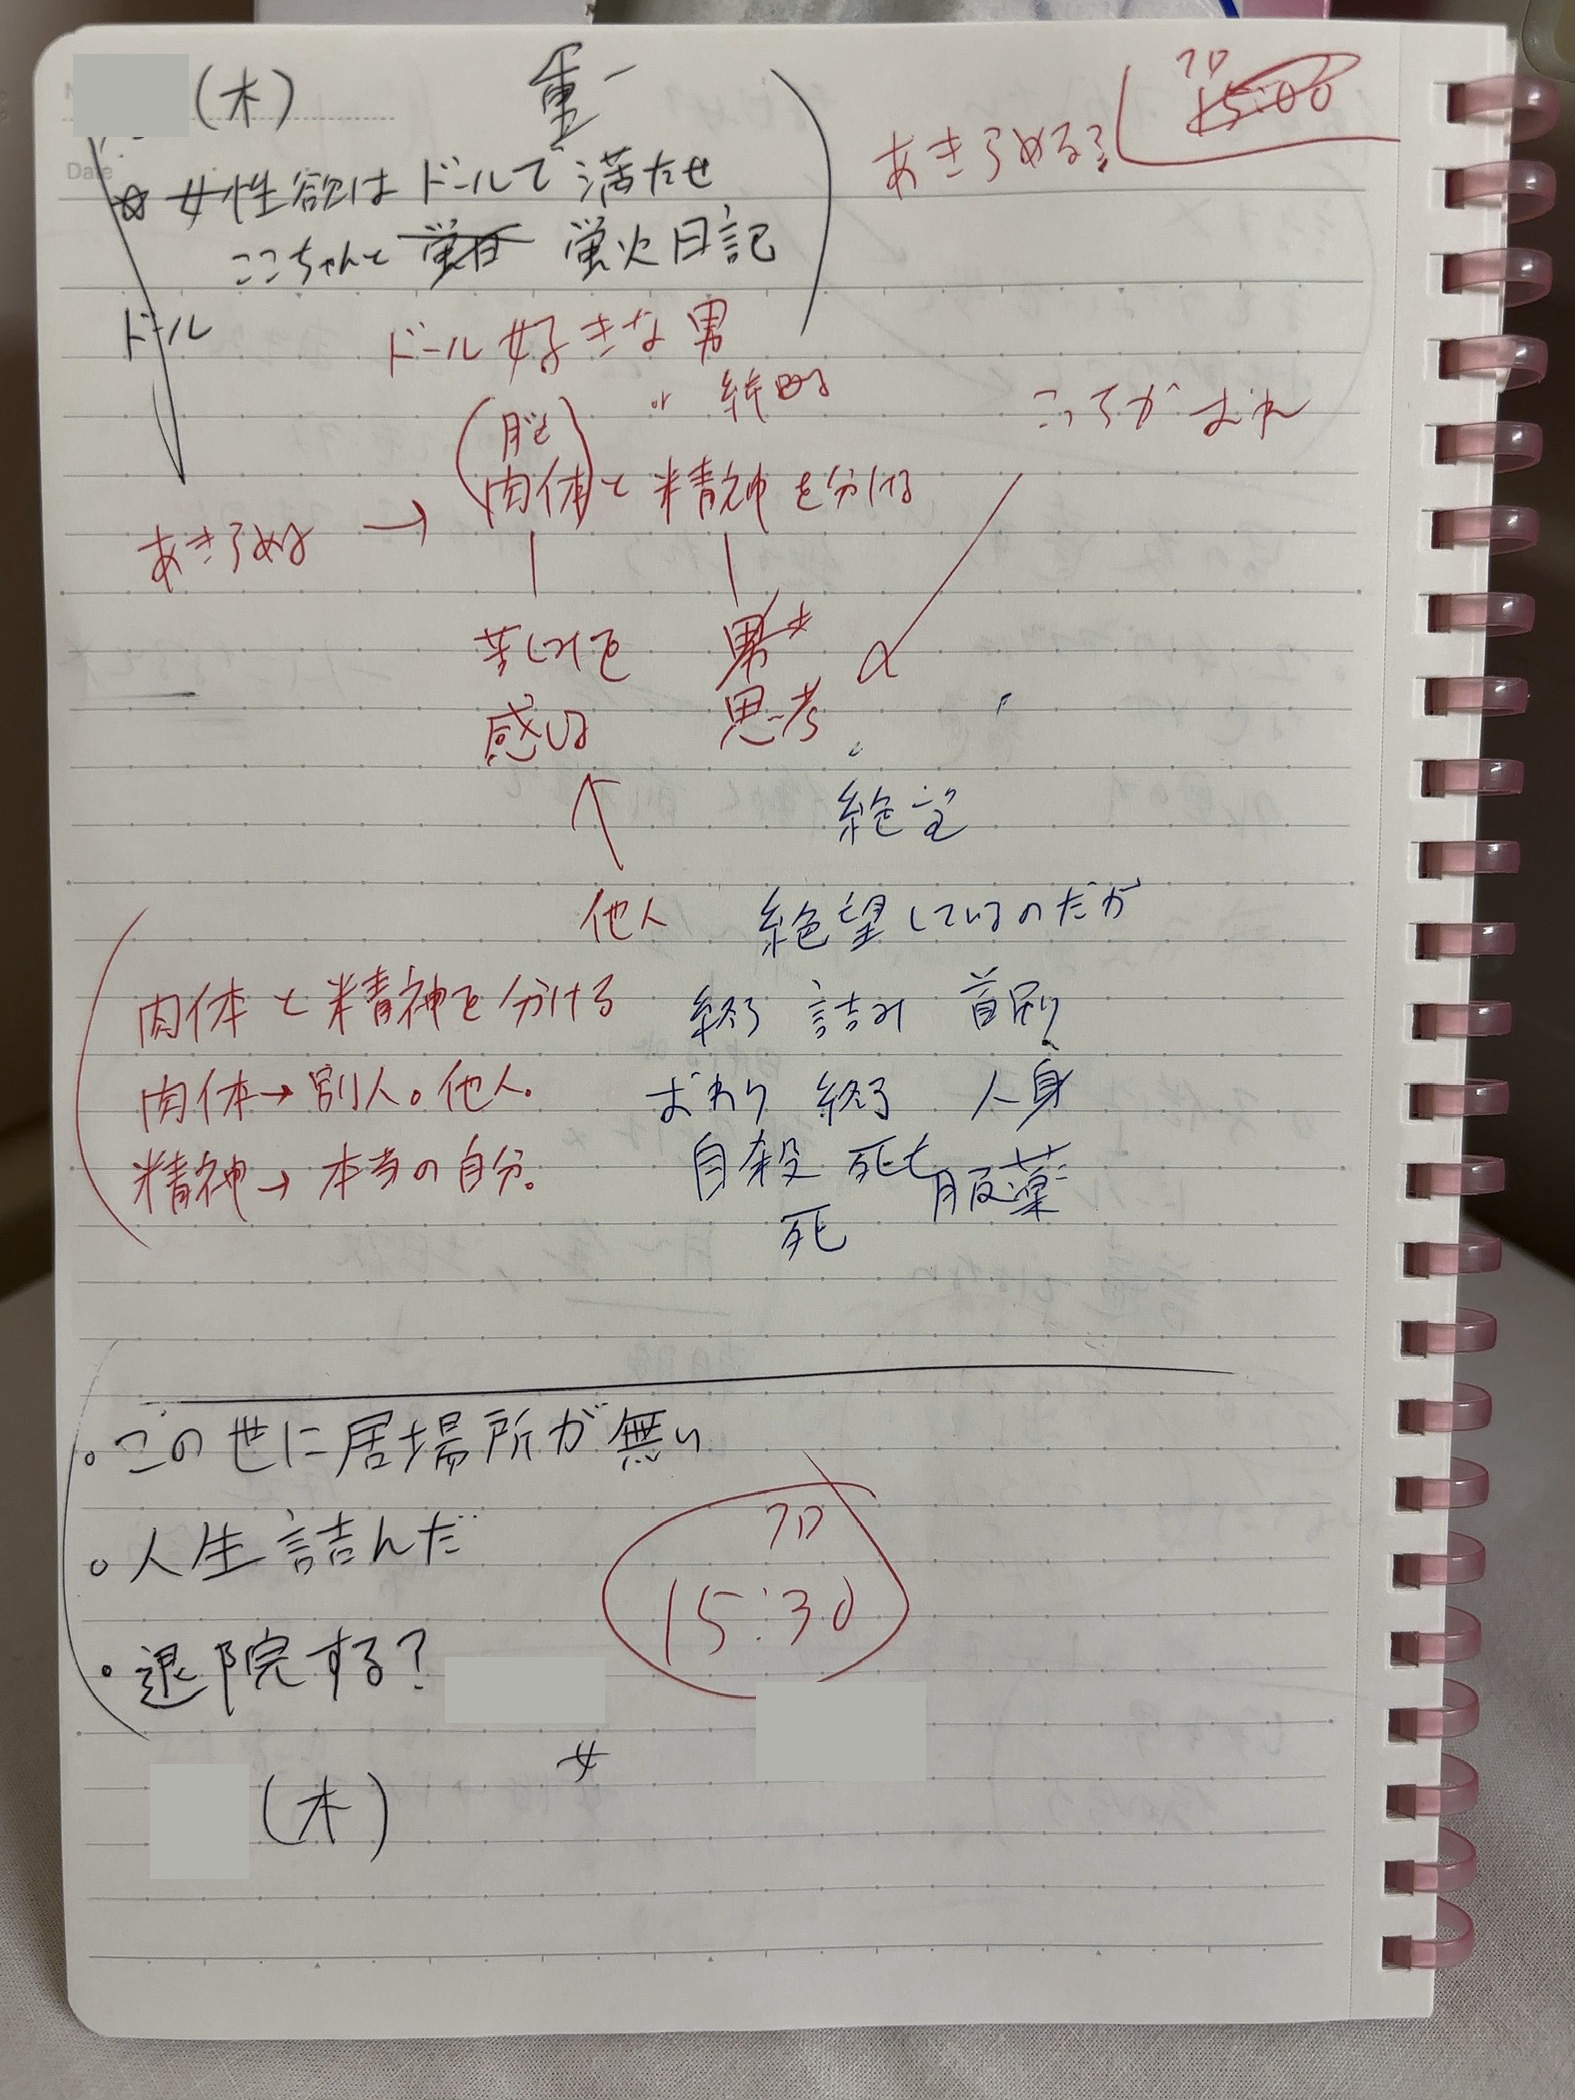 (木)
重一
フロ
15:00
あきらめる?
☆ 女性欲はドールで満たせ
ここちゃんと 蛍日 蛍火日記
ドール
ドール好きな男
or
こっちがおれ
(脳)
肉体と精神を分ける
あきらめる →
苦しみを
感じる
男女
思考
絶望
他人
絶望しているのだが
肉体と精神を分ける
終了 詰み 首吊り
肉体→別人。他人。
おわり 終了 人身
精神→本当の自分。
自殺 死亡 服薬
死
。この世に居場所が無い
。人生詰んだ
フロ
15:30
。退院する?
女
(木)